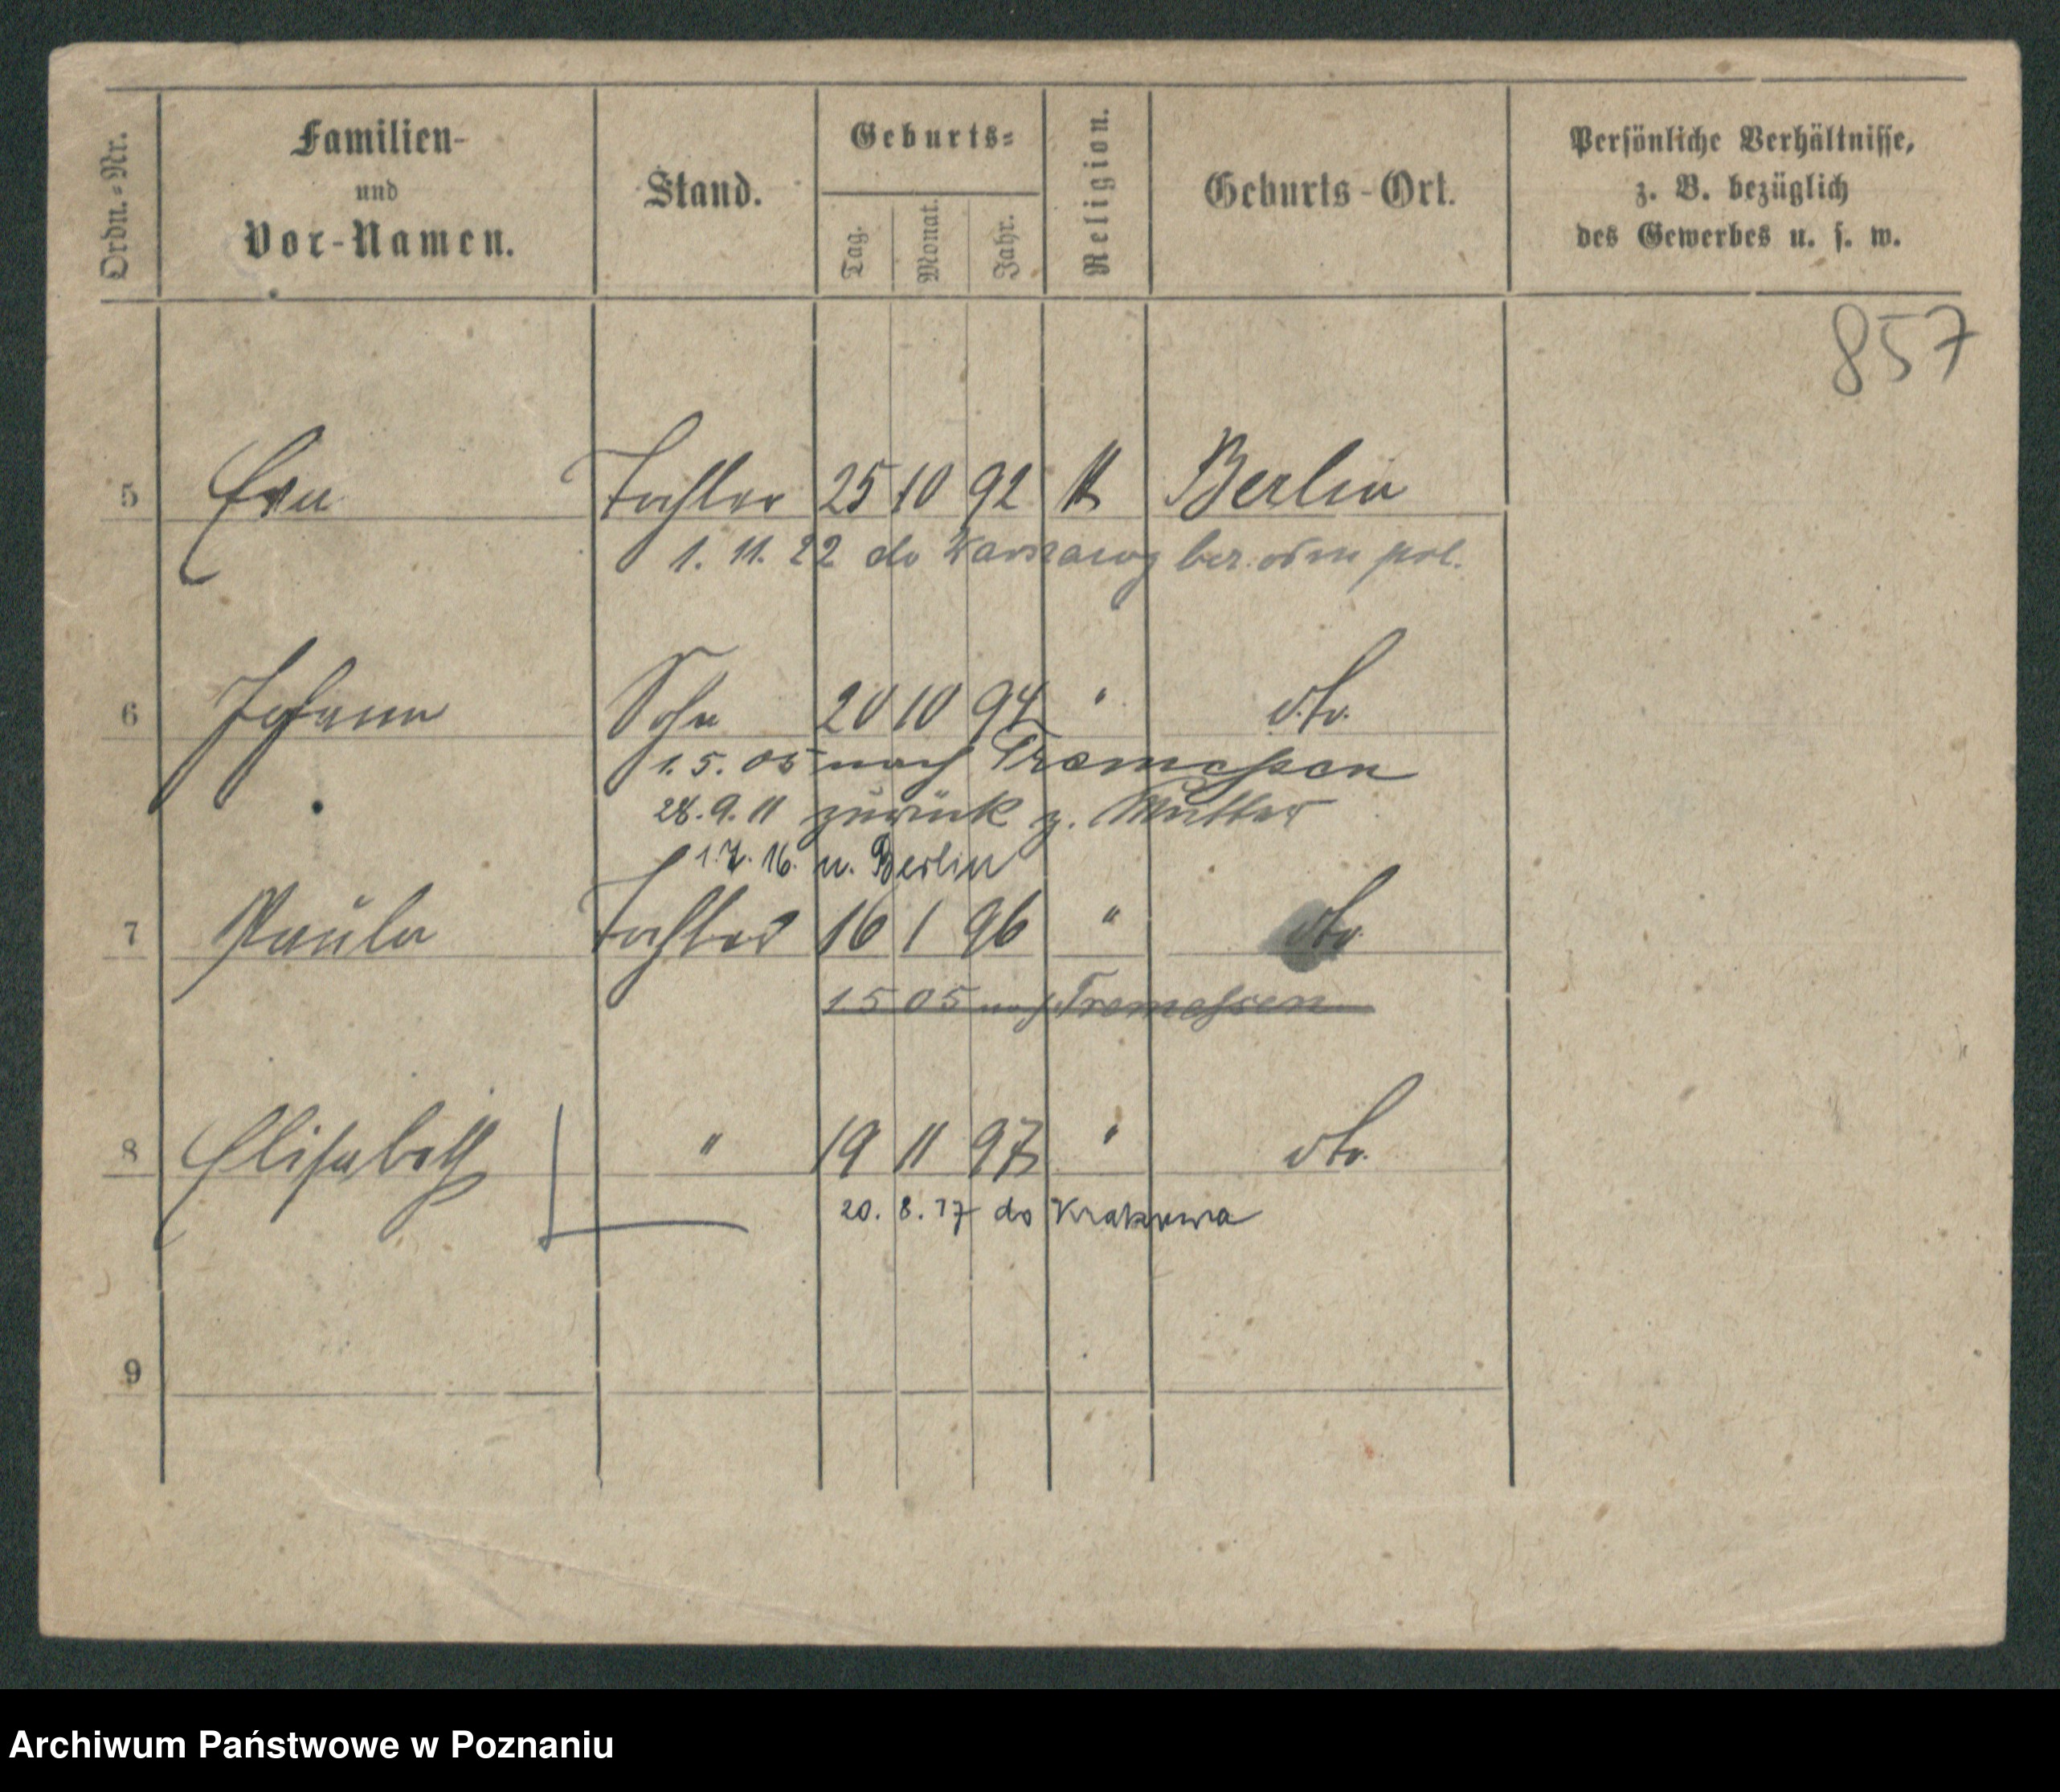 Ordn.-Nr.
Familien-
und
Vor-Namen.
Stand.
Geburts-
Tag.
Monat.
Jahr.
Religion.
Geburts-Ort.
Persönliche Verhältnisse,
z. B. bezüglich
des Gewerbes u. s. w.
857
5 Eva Tochter 25 10 92 k Berlin
1. 11. 22 do Warszawy pol.
6 Johann Sohn 20 10 94 " dto.
1. 5. 05 nach Tremessen
28. 9. 11 zurück z. Mutter
1. 7. 16. n. Berlin
7 Paula Tochter 16 1 96 " dto.
1 5 05 nach Tremessen
8 Elisabeth " 19 11 97 " dto.
20. 8. 17 do Krakowa
9
Archiwum Państwowe w Poznaniu